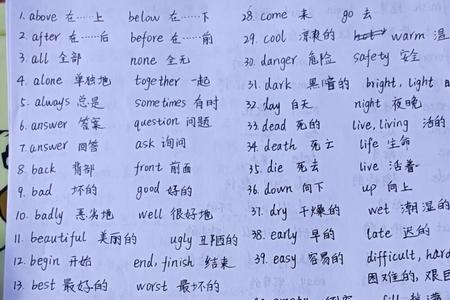 1. above 在……上 below 在……下
2. after 在……后 before 在……前
3. all 全部 none 全无
4. alone 单独地 together 一起
5. always 总是 sometimes 有时
6. answer 答案 question 问题
7. answer 回答 ask 询问
8. back 背部 front 前面
9. bad 坏的 good 好的
10. badly 恶劣地 well 很好地
11. beautiful 美丽的 ugly 丑陋的
12. begin 开始 end, finish 结束
13. best 最好的 worst 最坏的
28. come 来 go 去
29. cool 凉爽的 warm 温
30. danger 危险 safety 安全
31. dark 黑暗的 bright, light
32. day 白天 night 夜晚
33. dead 死的 live, living 活的
34. death 死亡 life 生命
35. die 死去 live 活着
36. down 向下 up 向上
37. dry 干燥的 wet 潮湿的
38. early 早的 late 迟的
39. easy 容易的 difficult, hard
困难的, 艰巨